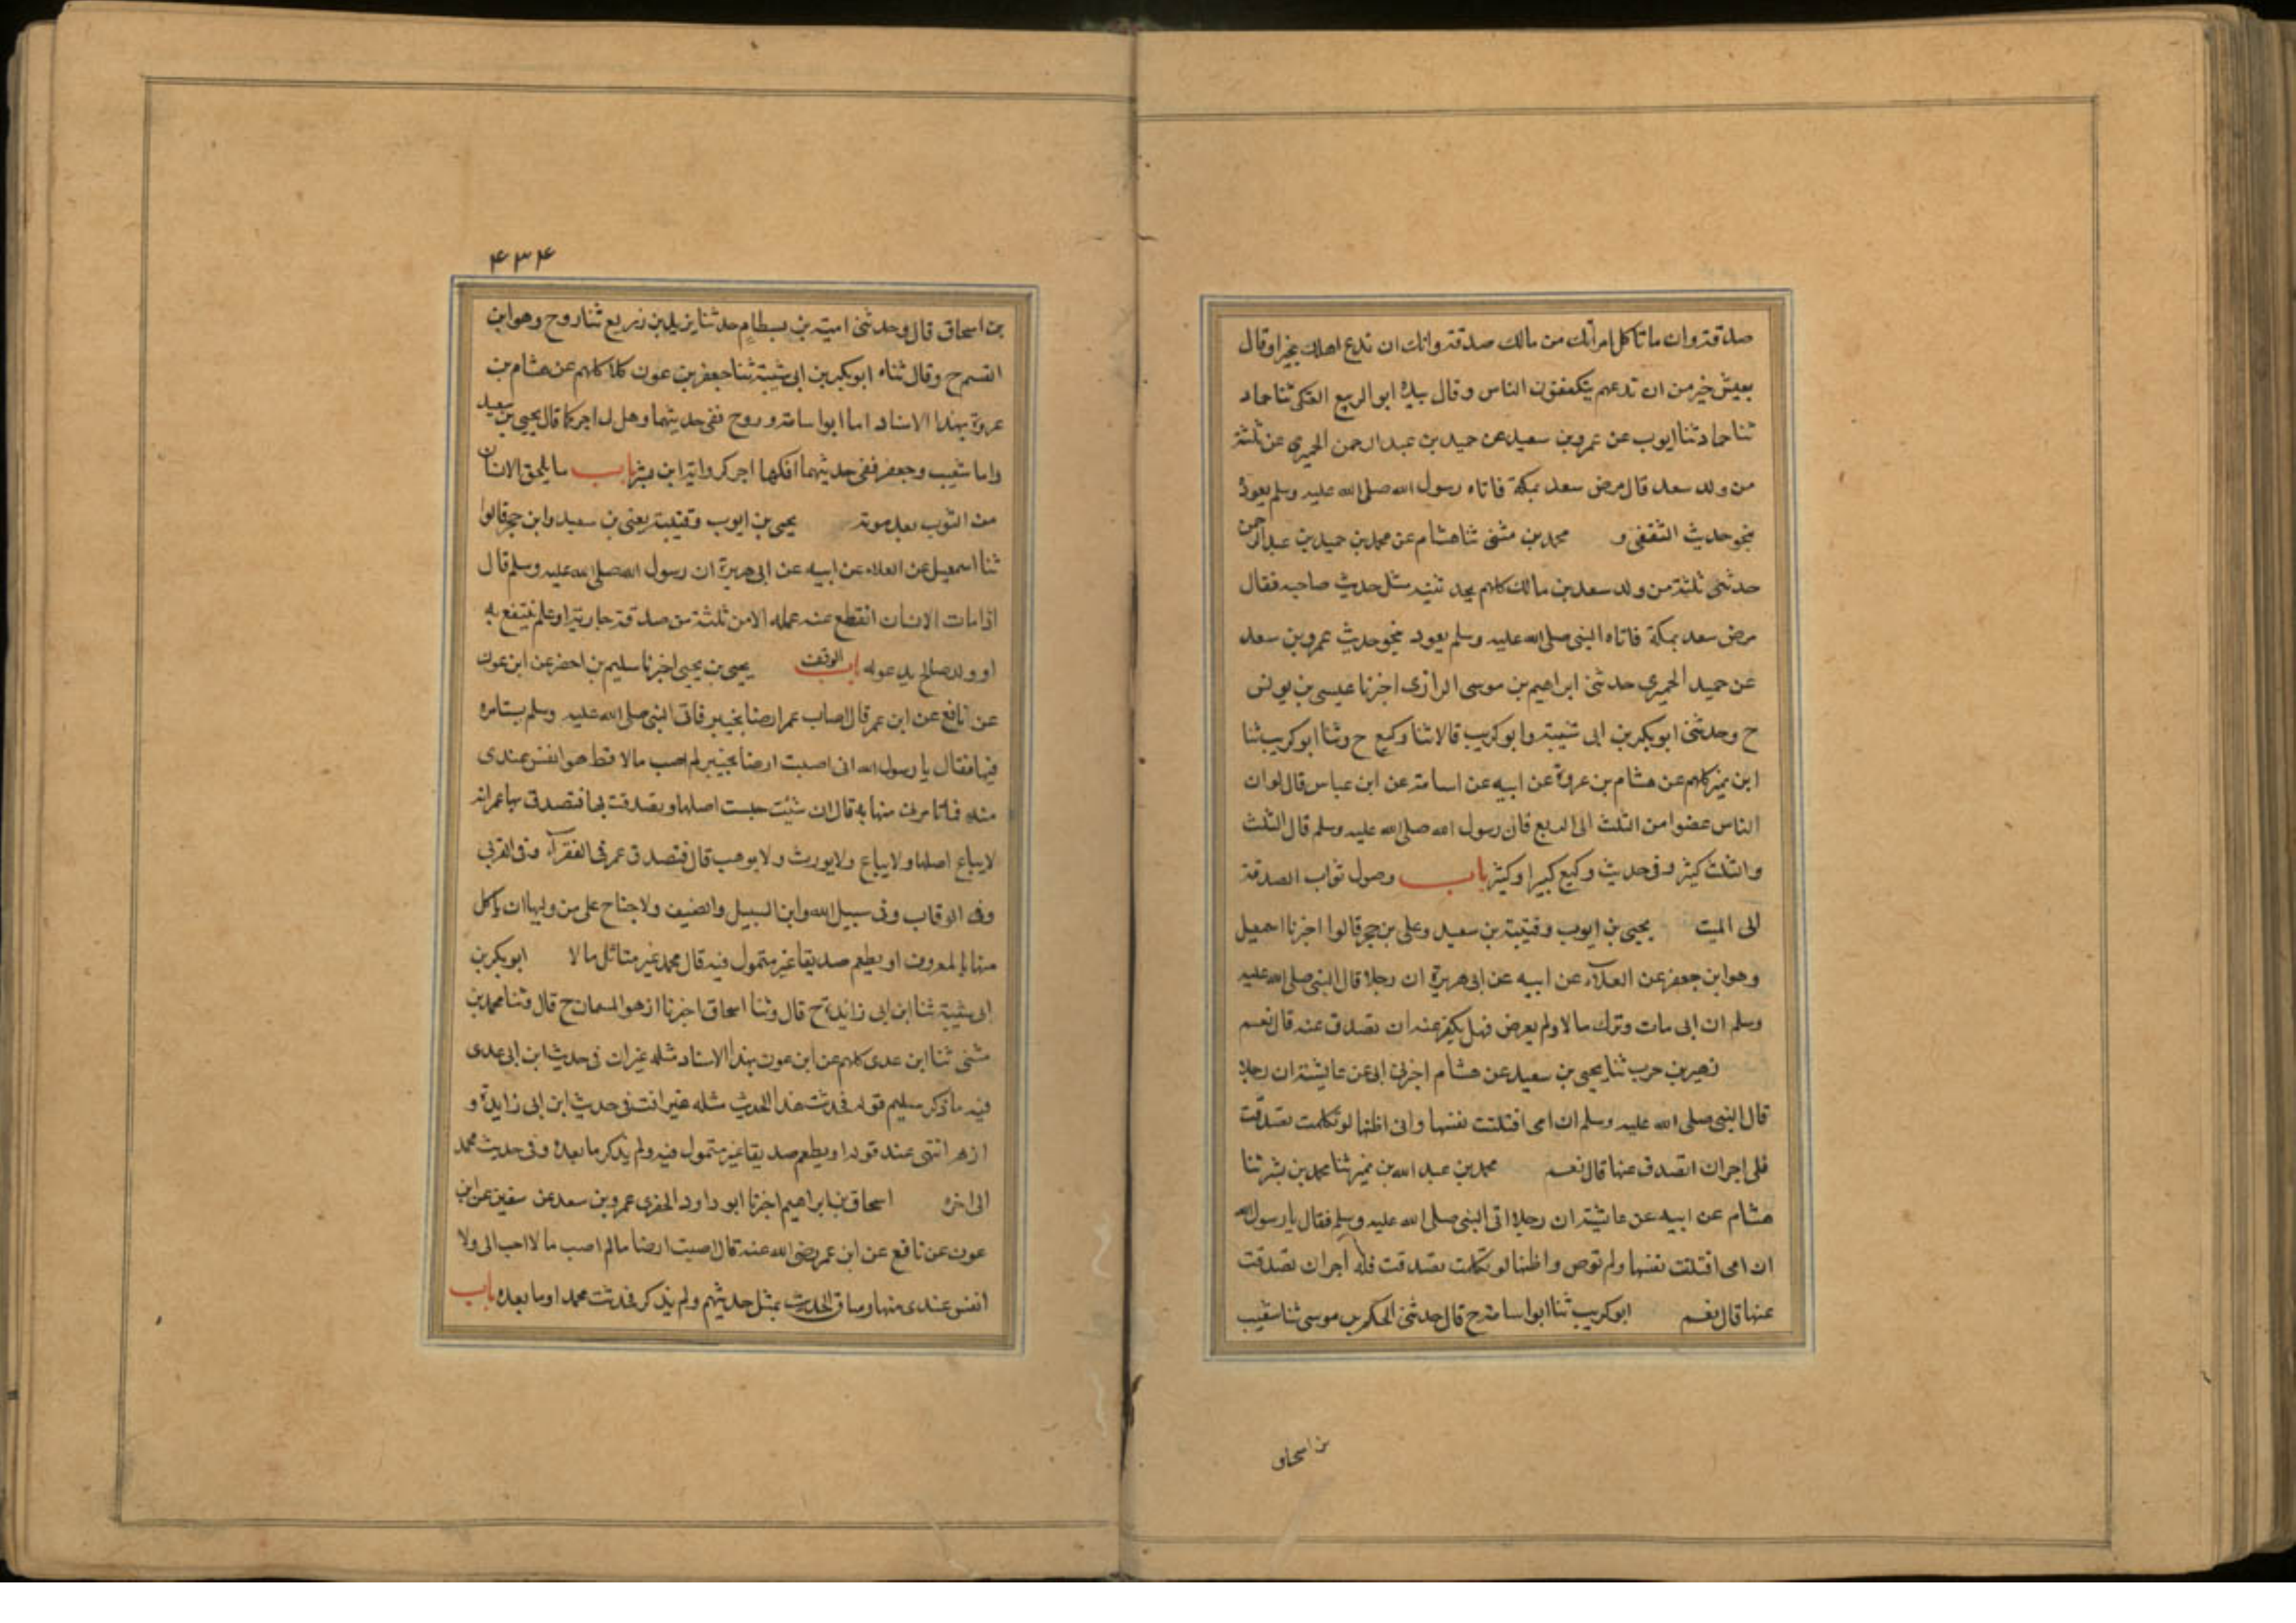 صدقة وان ما تاكل امراتك من مالك صدقة وانك ان تدع اهلك بخير او قال
بعيش خير من ان تدعهم يتكففون الناس وقال بيده ابو الربيع العتكي ثنا حماد
ثنا حماد ثنا ايوب عن عمرو بن سعيد عن حميد بن عبد الرحمن الحميري عن ثلثة
من ولد سعد قال مرض سعد بمكة فاتاه رسول الله صلى الله عليه وسلم يعوده
بنحو حديث الثقفي و محمد بن مثنى ثنا هشام عن محمد بن حميد بن عبد الرحمن
حدثني ثلثة من ولد سعد بن مالك كلهم يحدثنيه مثل حديث صاحبه فقال
مرض سعد بمكة فاتاه النبي صلى الله عليه وسلم يعود بنحو حديث عمرو بن سعد
عن حميد الحميري حدثني ابراهيم بن موسى الرازي اخبرنا عيسى بن يونس
ح وحدثني ابو بكر بن ابي شيبة وابو كريب قالا ثنا وكيع ح وثنا ابو كريب ثنا
ابن نمير كلهم عن هشام بن عروة عن ابيه عن اسامة عن ابن عباس قال لو ان
الناس غضوا من الثلث الى الربع فان رسول الله صلى الله عليه وسلم قال الثلث
والثلث كثير وفي حديث وكيع كبير او كثير باب وصول ثواب الصدقة
الى الميت يحيى بن ايوب وقتيبة بن سعيد وعلى بن حجر قالوا اخبرنا اسمعيل
وهو ابن جعفر عن العلاء عن ابيه عن ابي هريرة ان رجلا قال النبي صلى الله عليه
وسلم ان ابي مات وترك مالا ولم يعرض فهل يكفر عنه ان تصدق عنه قال نعم
زهير بن حرب ثنا يحيى بن سعيد عن هشام اخبرني ابي عن عايشة ان رجلا
قال النبي صلى الله عليه وسلم ان امي افتلتت نفسها واني اظنها لو تكلمت تصدقت
فلي اجر ان اتصدق عنها قال نعم محمد بن عبد الله بن نمير ثنا محمد بن بشر ثنا
هشام عن ابيه عن عايشة ان رجلا اتى النبي صلى الله عليه وسلم فقال يا رسول الله
ان امي افتلتت نفسها ولم توص واظنها لو تكلمت تصدقت فلها اجر ان تصدقت
عنها قال نعم ابو كريب ثنا ابو اسامة ح قال حدثني الحكم بن موسى ثنا شعيب
بن اسحاق
۴۳۴
بن اسحاق قال وحدثني امية بن بسطام حدثنا يزيد بن زريع ثنا روح وهو ابن
القسم ح وقال ثناه ابو بكر بن ابي شيبة ثنا جعفر بن عون كلا كلهم عن هشام بن
عروة بهذا الاسناد اما ابو اسامة وروح ففي حديثهما وهل له اجر كما قال يحيى بن سعيد
واما شعيب وجعفر ففي حديثهما افلها اجر كرواية ابن بشر باب ما يلحق الانسان
من الثوب بعد موته يحيى بن ايوب وقتيبة يعني بن سعيد وابن حجر قالوا
ثنا اسمعيل عن العلاء عن ابيه عن ابي هريرة ان رسول الله صلى الله عليه وسلم قال
اذا مات الانسان انقطع عنه عمله الا من ثلثة من صدقة جارية او علم ينتفع به
او ولد صالح يدعو له باب الوقف يحيى بن يحيى اخبرنا سليم بن اخضر عن ابن عون
عن نافع عن ابن عمر قال اصاب عمر ارضا بخيبر فاتى النبي صلى الله عليه وسلم يستامره
فيها فقال يا رسول الله اني اصبت ارضا بخيبر لم اصب مالا قط هو انفس عندي
منه فما تامرني منها به قال ان شئت حبست اصلها وتصدقت بها فتصدق بها عمر انه
لا يباع اصلها ولا يباع ولا يورث ولا يوهب قال فتصدق عمر في الفقرآء وفي القربى
وفي الرقاب وفي سبيل الله وابن السبيل والضيف ولا جناح على من وليها ان ياكل
منها بالمعروف او يطعم صديقا غير متمول فيه قال محمد غير متاثل مالا ابو بكر بن
ابي شيبة ثنا ابن ابي زايدة ح قال وثنا اسحاق اخبرنا ازهر السمان ح قال وثنا محمد بن
مثنى ثنا ابن عدي كلهم عن ابن عون بهذا الاسناد مثله غير ان في حديث ابن ابي عدي
فيه ما ذكر سليم قوله فحدثت هذا الحديث مثله غير انت في حديث ابن ابي زايدة و
ازهر انتهى عند قوله او يطعم صديقا غير متمول فيه ولم يذكر ما بعده وفي حديث محمد
الى اخره اسحاق بن ابراهيم اخبرنا ابو داود الحفري عمرو بن سعد عن سفين عن ابن
عون عن نافع عن ابن عمر رضي الله عنه قال اصبت ارضا مالم اصب مالا احب الى ولا
انفس عندي منها وساق الحديث بمثل حديثهم ولم يذكر فحدثت محمد او ما بعده باب